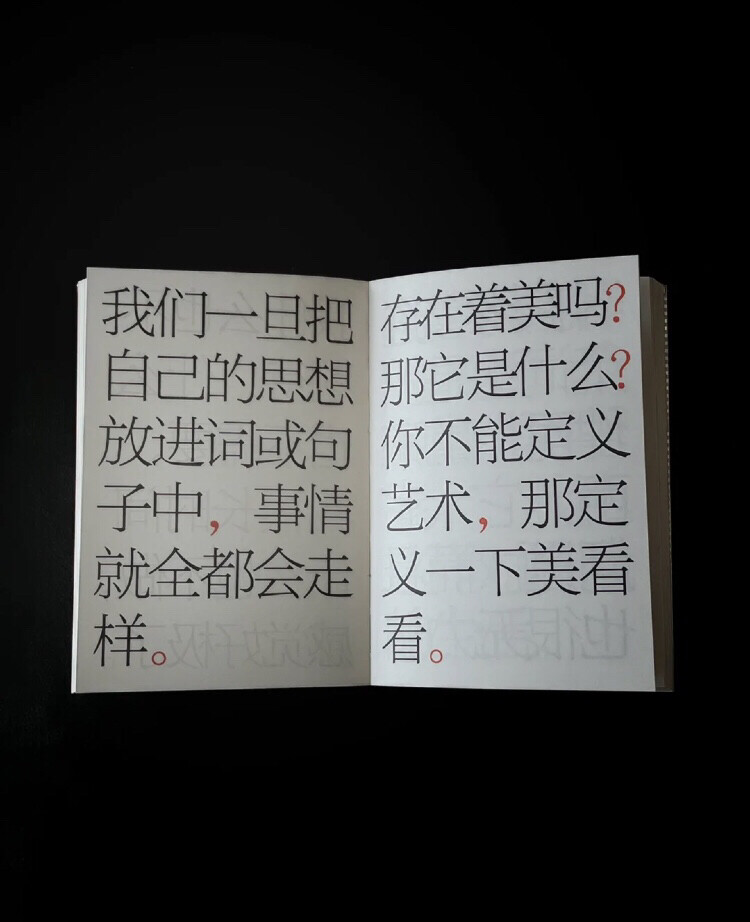 我们一旦把
自己的思想
放进词或句
子中，事情
就全都会走
样。
存在着美吗？
那它是什么？
你不能定义
艺术，那定
义一下美看
看。